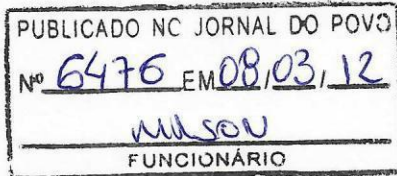 PUBLICADO NC JORNAL DO POVO
Nº 6476 EM 08,03,12
NILSON
FUNCIONÁRIO